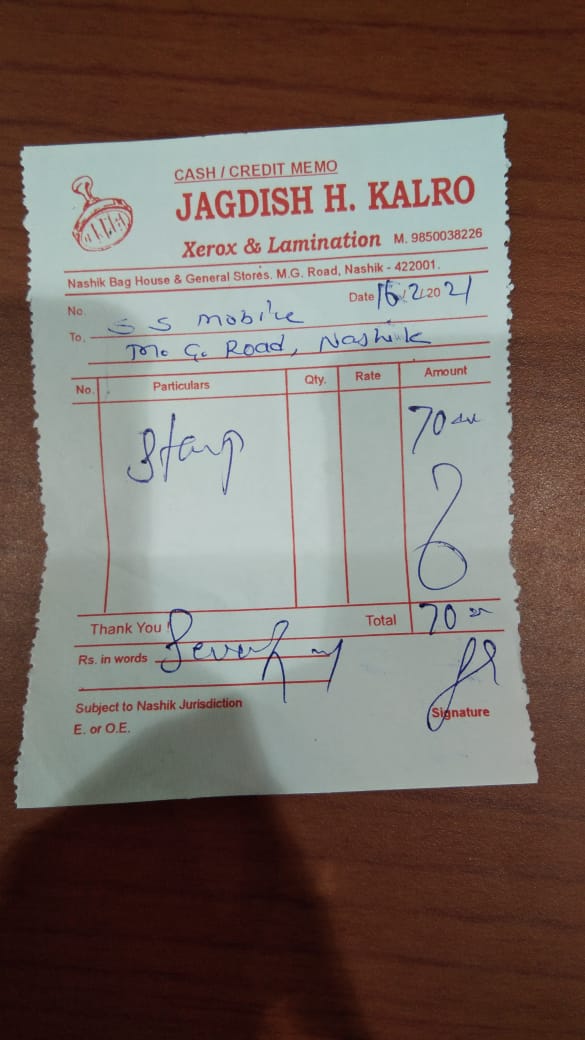 CASH / CREDIT MEMO
JAGDISH H. KALRO
Xerox & Lamination M. 9850038226
Nashik Bag House & General Stores. M.G. Road, Nashik - 422001.
No. Date 16.2.2021
To. S S Mobile
M. G. Road, Nashik
No. Particulars Qty. Rate Amount
Stamp 70
Thank You ! Total 70
Rs. in words Seventy
Subject to Nashik Jurisdiction
E. or O.E. Signature